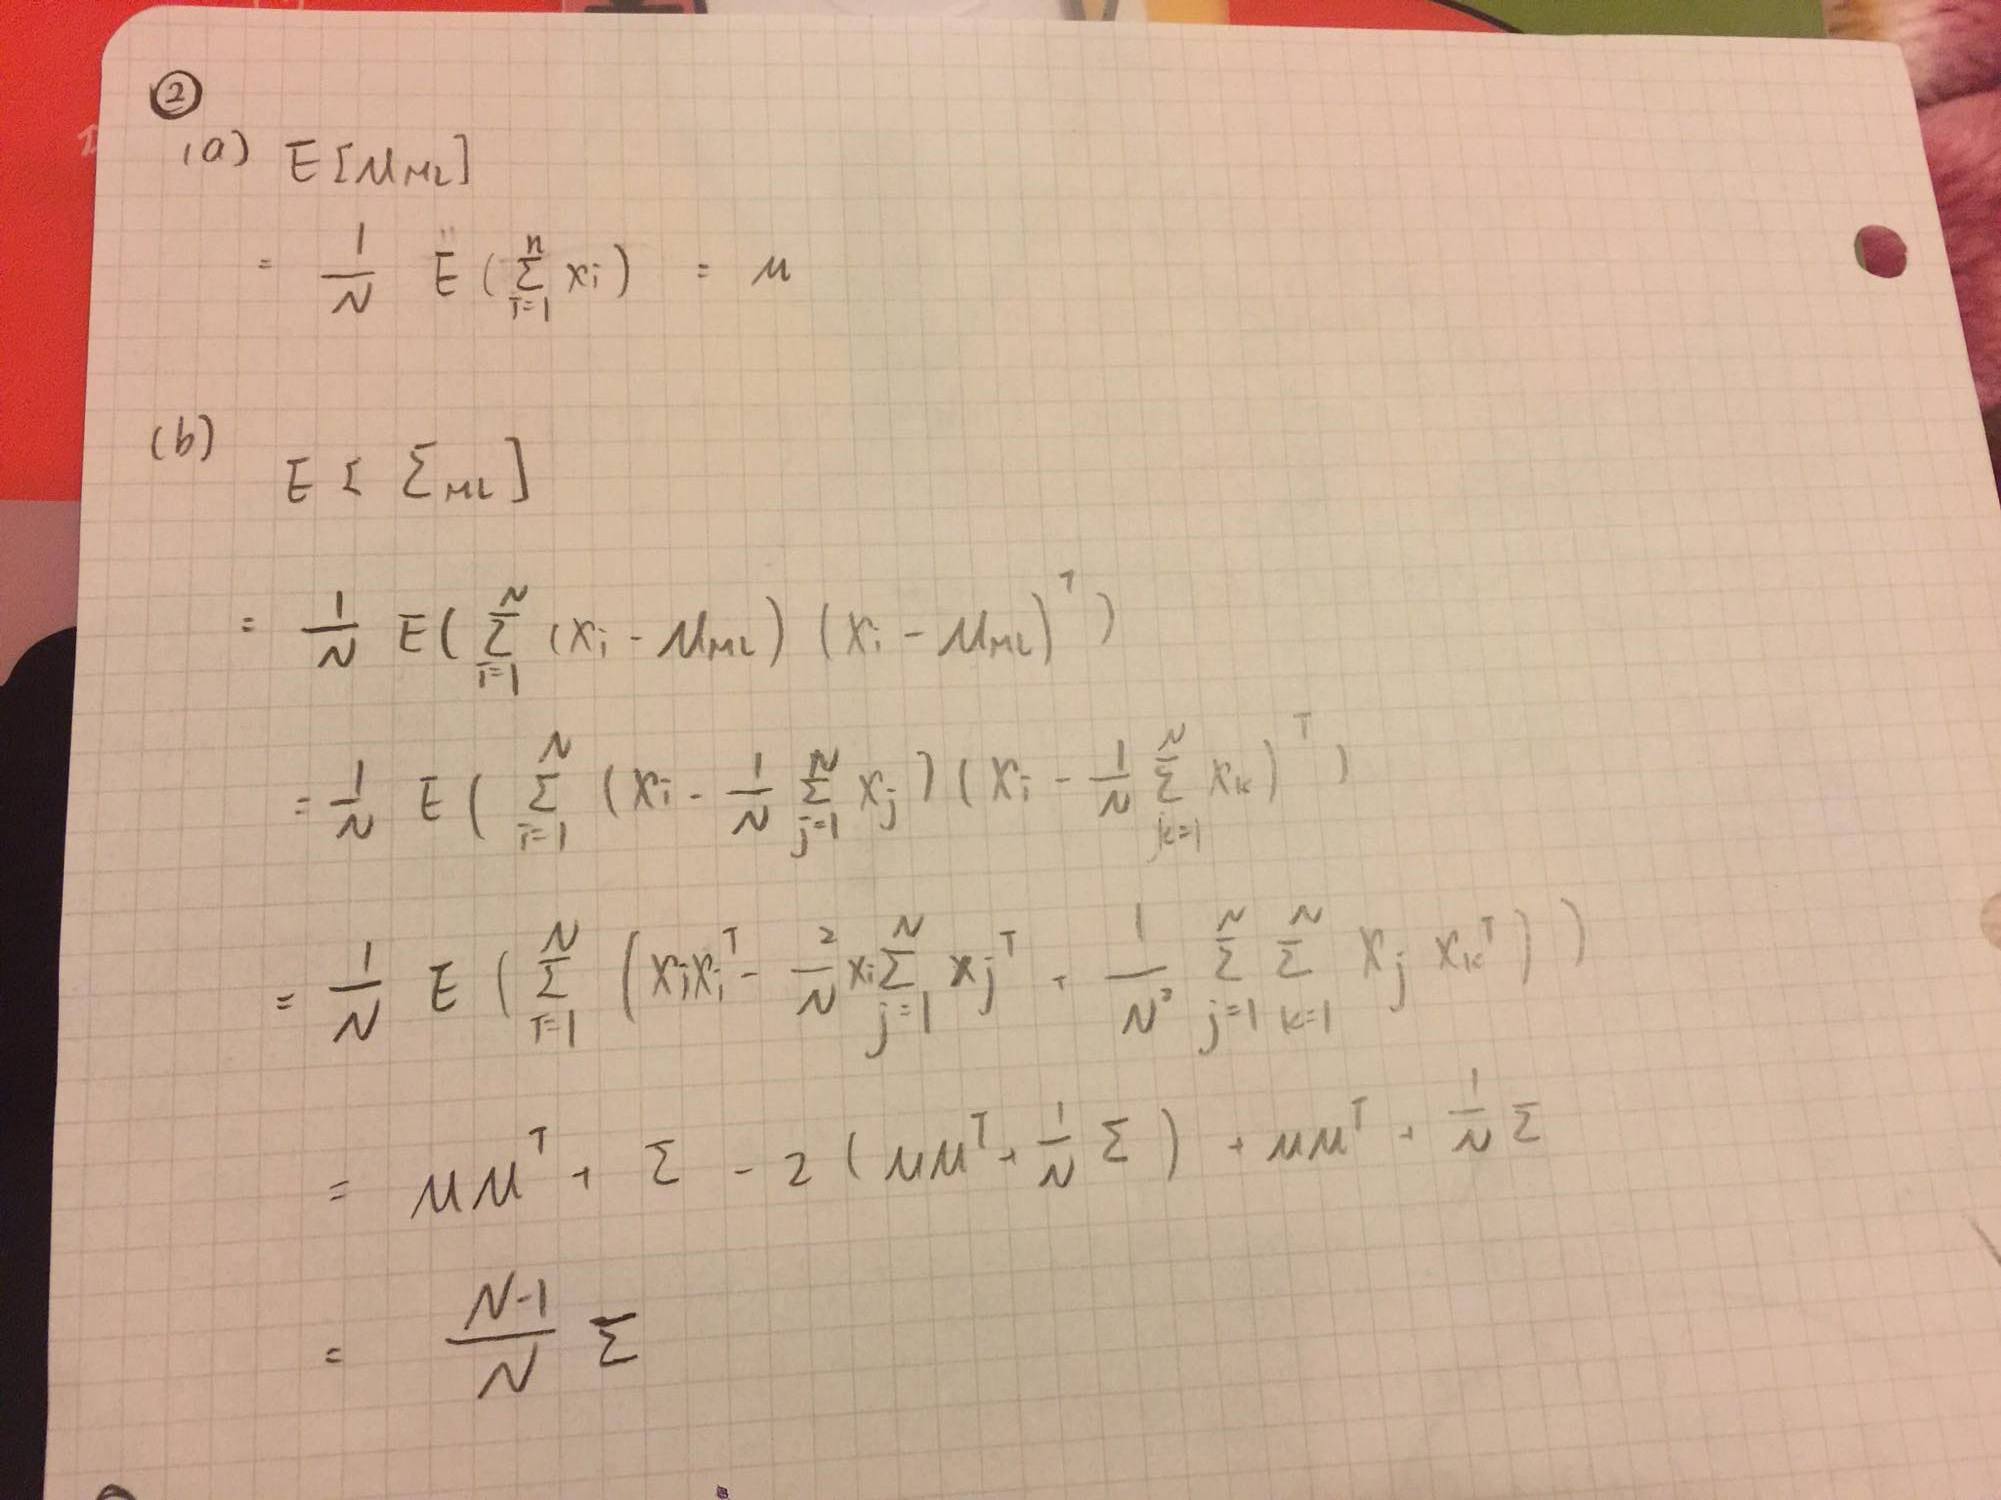 ②
(a) E[μ_ML]
= 1/N E(∑_{i=1}^{n} x_i) = μ
(b)
E[Σ_ML]
= 1/N E(∑_{i=1}^{N} (x_i - μ_ML)(x_i - μ_ML)^T)
= 1/N E(∑_{i=1}^{N} (x_i - 1/N ∑_{j=1}^{N} x_j)(x_i - 1/N ∑_{k=1}^{N} x_k)^T)
= 1/N E(∑_{i=1}^{N} (x_i x_i^T - 2/N x_i ∑_{j=1}^{N} x_j^T + 1/N^2 ∑_{j=1}^{N} ∑_{k=1}^{N} x_j x_k^T))
= μμ^T + Σ - 2(μμ^T + 1/N Σ) + μμ^T + 1/N Σ
= N-1/N Σ